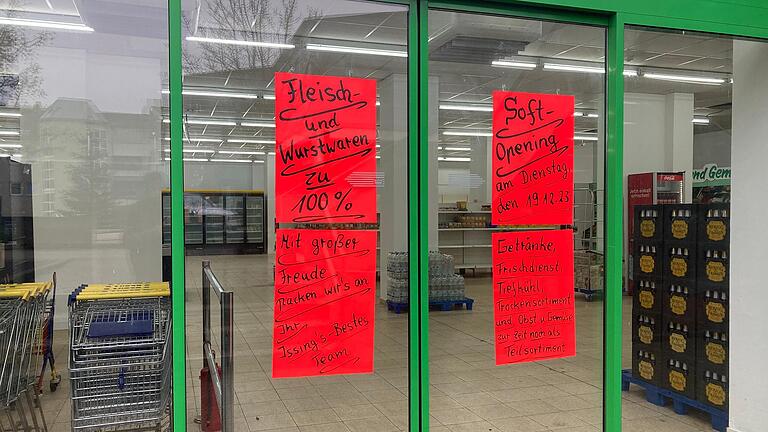 Fleisch-
und
Wurstwaren
zu
100%
Mit großer
Freude
Packen wir's an
Ihr
Issing's Bestes
Team
Soft-
Opening
am Dienstag,
den 19.12.23
Getränke,
Frischdienst,
Tiefkühl,
Trockensortiment
und Obst u. Gemüse
zur Zeit noch als
Teilsortiment